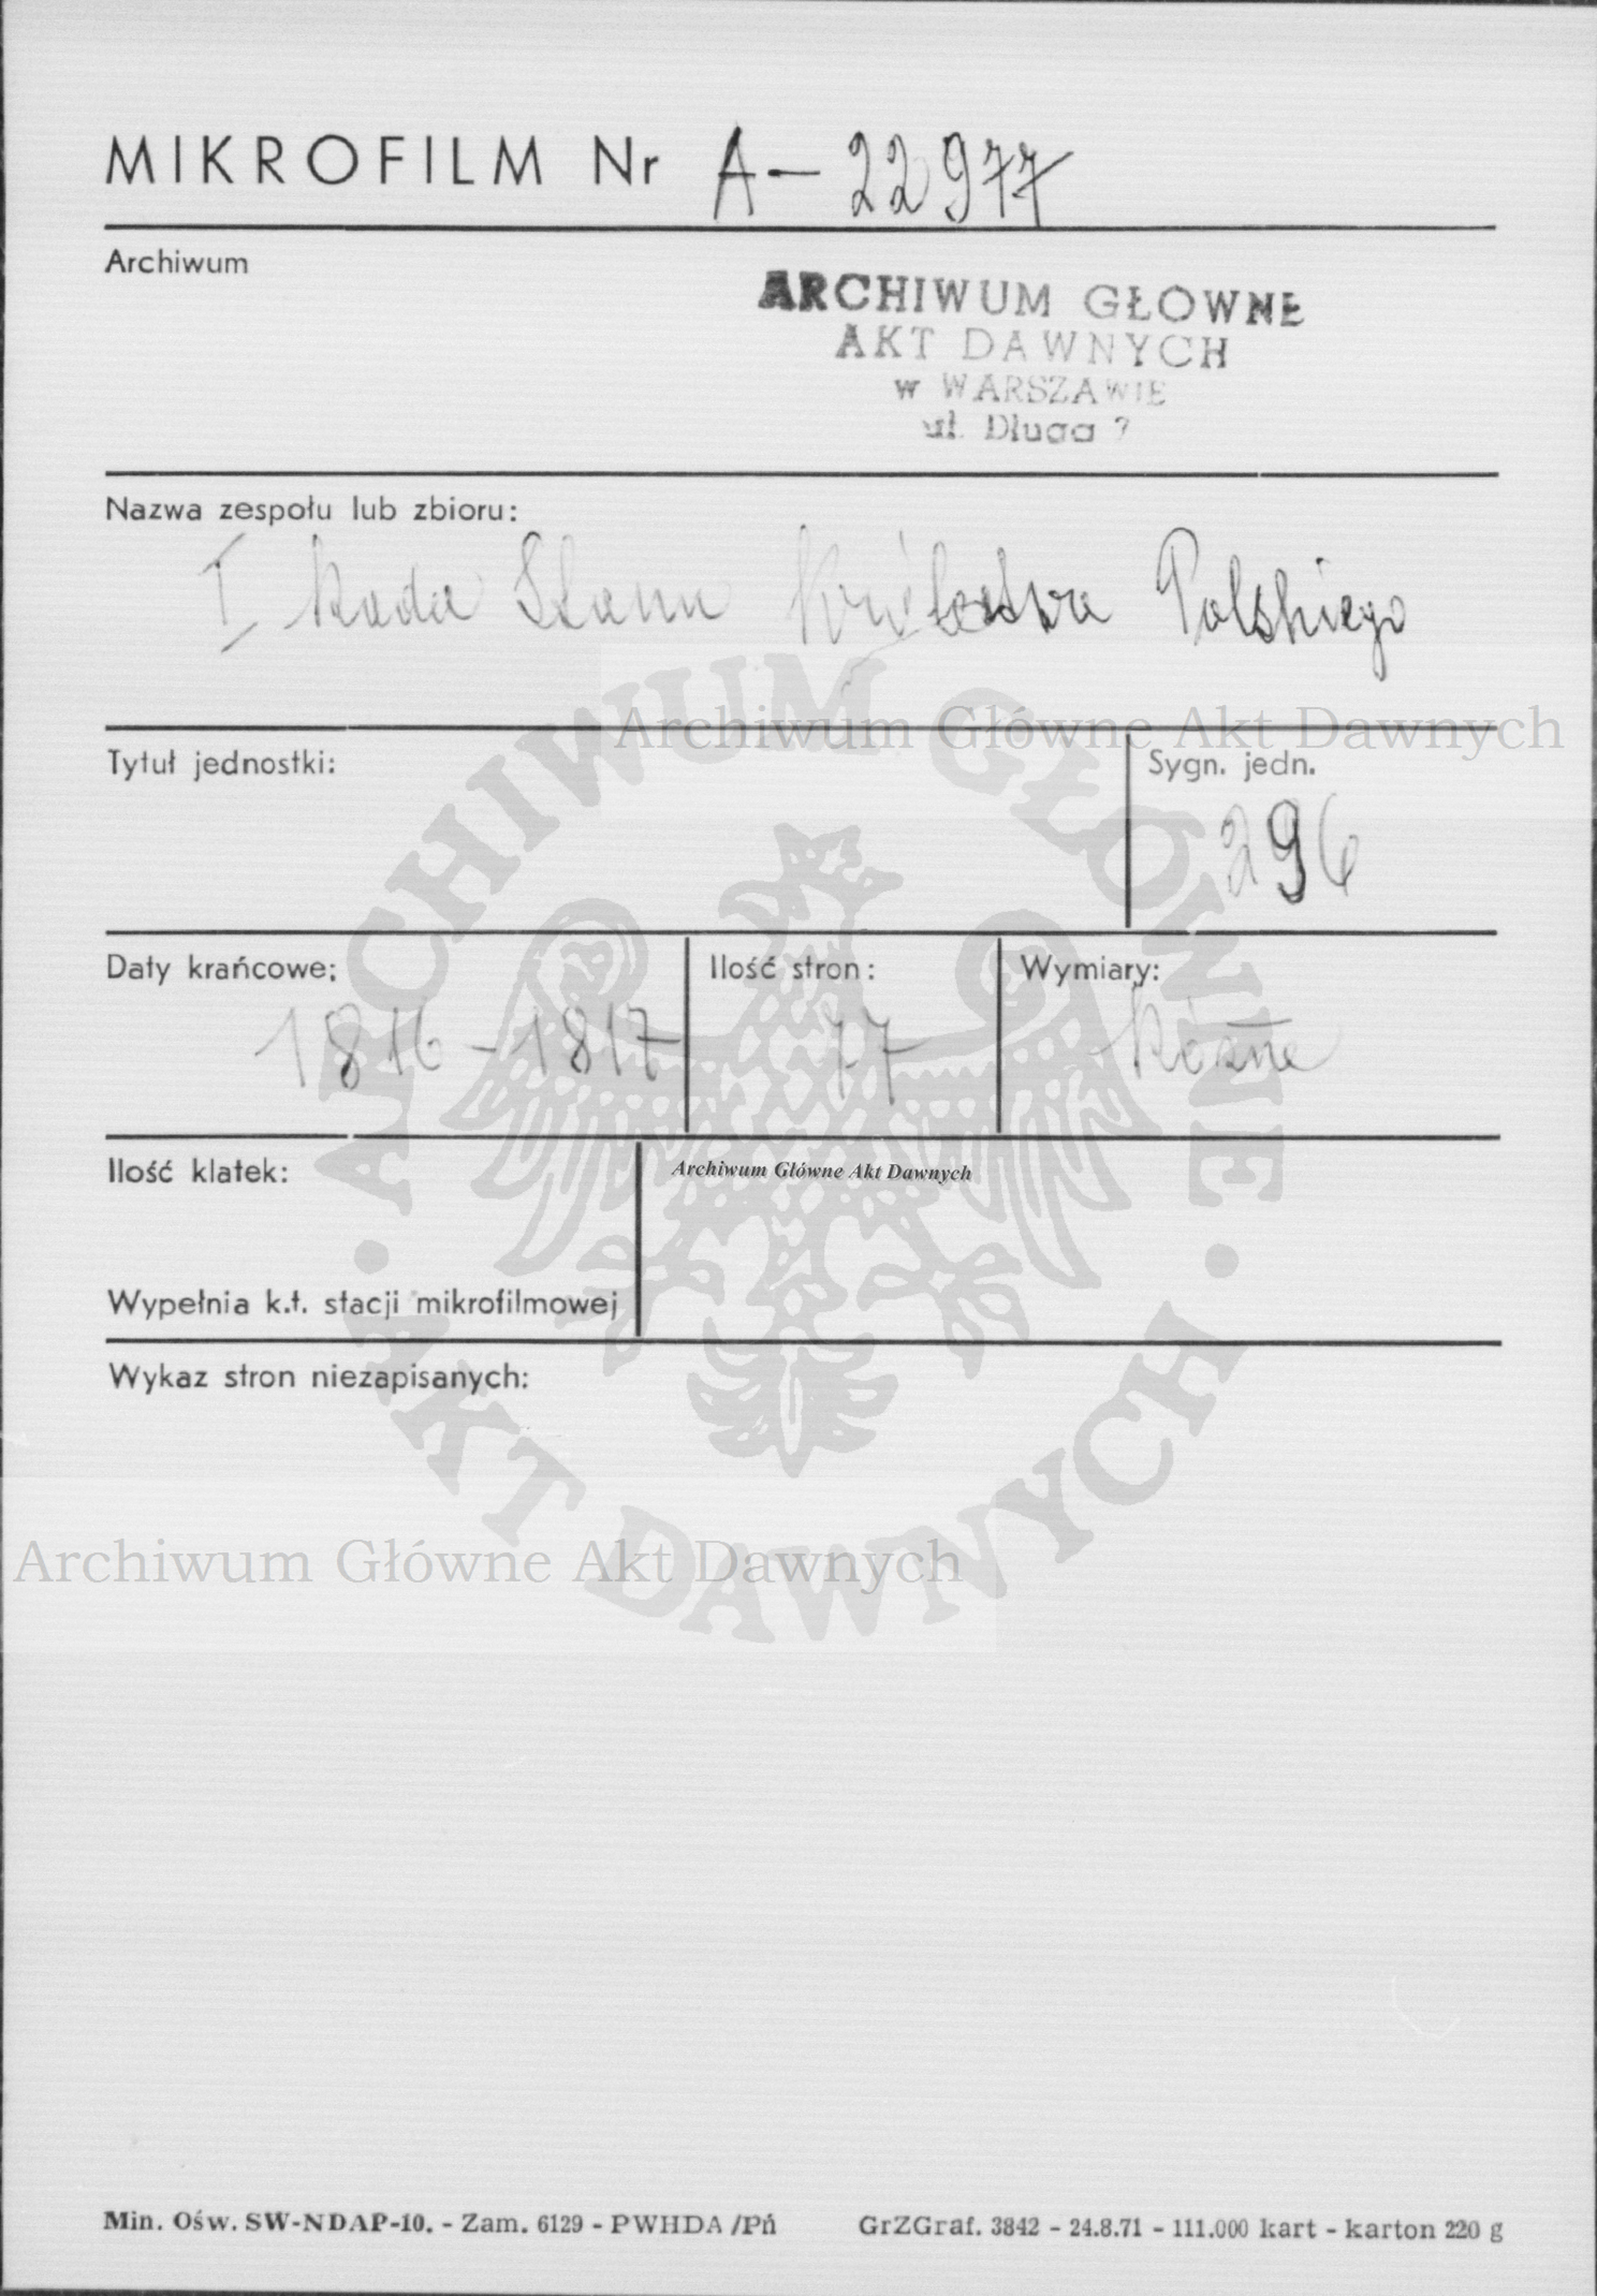 MIKROFILM Nr A-22977
Archiwum
ARCHIWUM GŁOWNE
AKT DAWNYCH
w WARSZAWIE
ul. Długa 7
Nazwa zespołu lub zbioru:
I Rada Stanu Królestwa Polskiego
Archiwum Główne Akt Dawnych
Tytuł jednostki:
Sygn. jedn.
296
Daty krańcowe:
1816-1817
Ilość stron:
77
Wymiary:
Różne
Ilość klatek:
Archiwum Główne Akt Dawnych
Wypełnia k.t. stacji mikrofilmowej
Wykaz stron niezapisanych:
ARCHIWUM GŁÓWNE • AKT DAWNYCH •
Archiwum Główne Akt Dawnych
Min. Ośw. SW-NDAP-10. - Zam. 6129 - PWHDA /Pń
GrZGraf. 3842 - 24.8.71 - 111.000 kart - karton 220 g